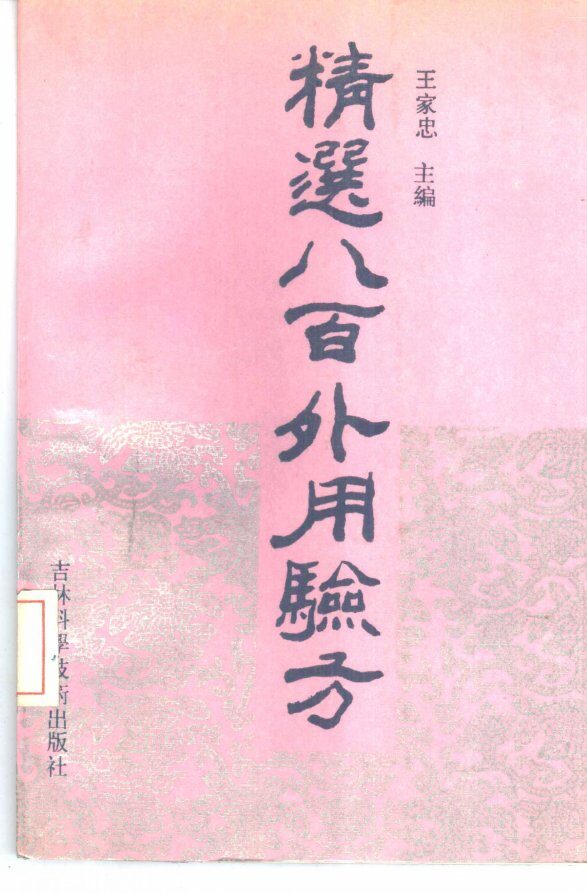 王家忠 主編
精選八百外用驗方
吉林科學技術出版社